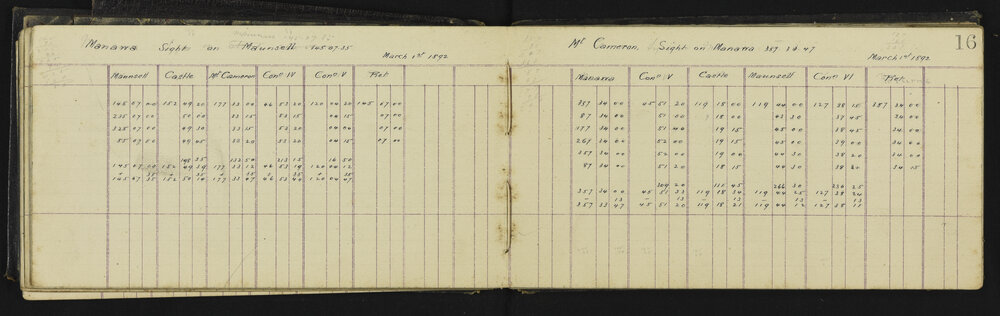 Manawa Sight on Maunsell 145.07.35
March 1st 1892
Maunsell Castle Mt Cameron Conn IV Conn V Ret
145 07 00 152 49 20 177 33 00 46 53 20 120 04 20 145 07 00
235 07 00 50 00 33 15 53 15 04 15 07 00
325 07 00 49 30 33 15 53 20 04 15 07 00
55 07 00 49 45 33 20 53 20 04 15 07 00
148 35 132 50 213 15 16 50
145 07 00 152 49 39 177 33 12 46 53 19 120 04 12
+ 35 + 35 + 35 + 35 + 35
145 07 35 152 50 14 177 33 47 46 53 54 120 04 47
16
Mt Cameron, Sight on Manawa 357 33 47
March 1st 1892
Manawa Conn V Castle Maunsell Conn VI Ret
357 34 00 45 51 20 119 18 00 119 44 00 127 38 15 357 34 00
87 34 00 51 00 18 00 43 30 37 45 34 00
177 34 00 51 40 19 15 45 00 38 45 34 00
267 34 00 52 00 19 15 45 00 39 00 34 00
357 34 00 52 00 19 00 44 30 38 20 34 00
87 34 00 51 20 18 15 44 30 38 20 34 15
309 20 111 45 266 30 230 25
357 34 00 45 51 33 119 18 34 119 44 25 127 38 24
- 13 - 13 - 13 - 13
357 33 47 45 51 20 119 18 21 119 44 12 127 38 11